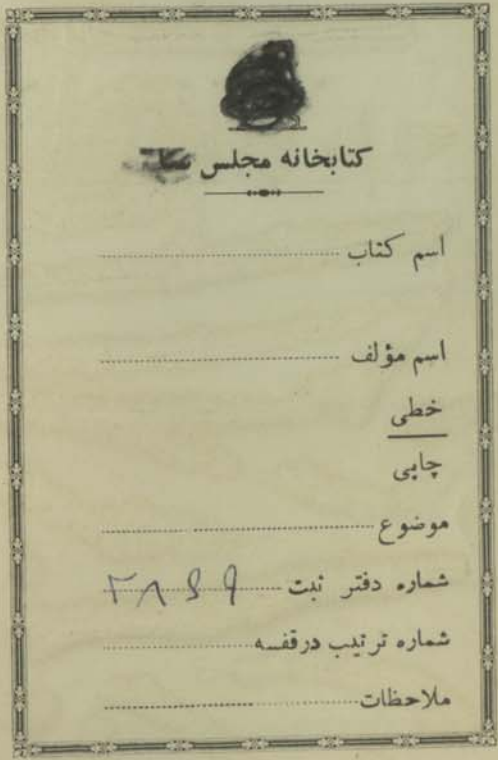 کتابخانه مجلس
اسم کتاب
اسم مؤلف
خطی
چاپی
موضوع
شماره دفتر ثبت
شماره ترتیب در قفسه
ملاحظات